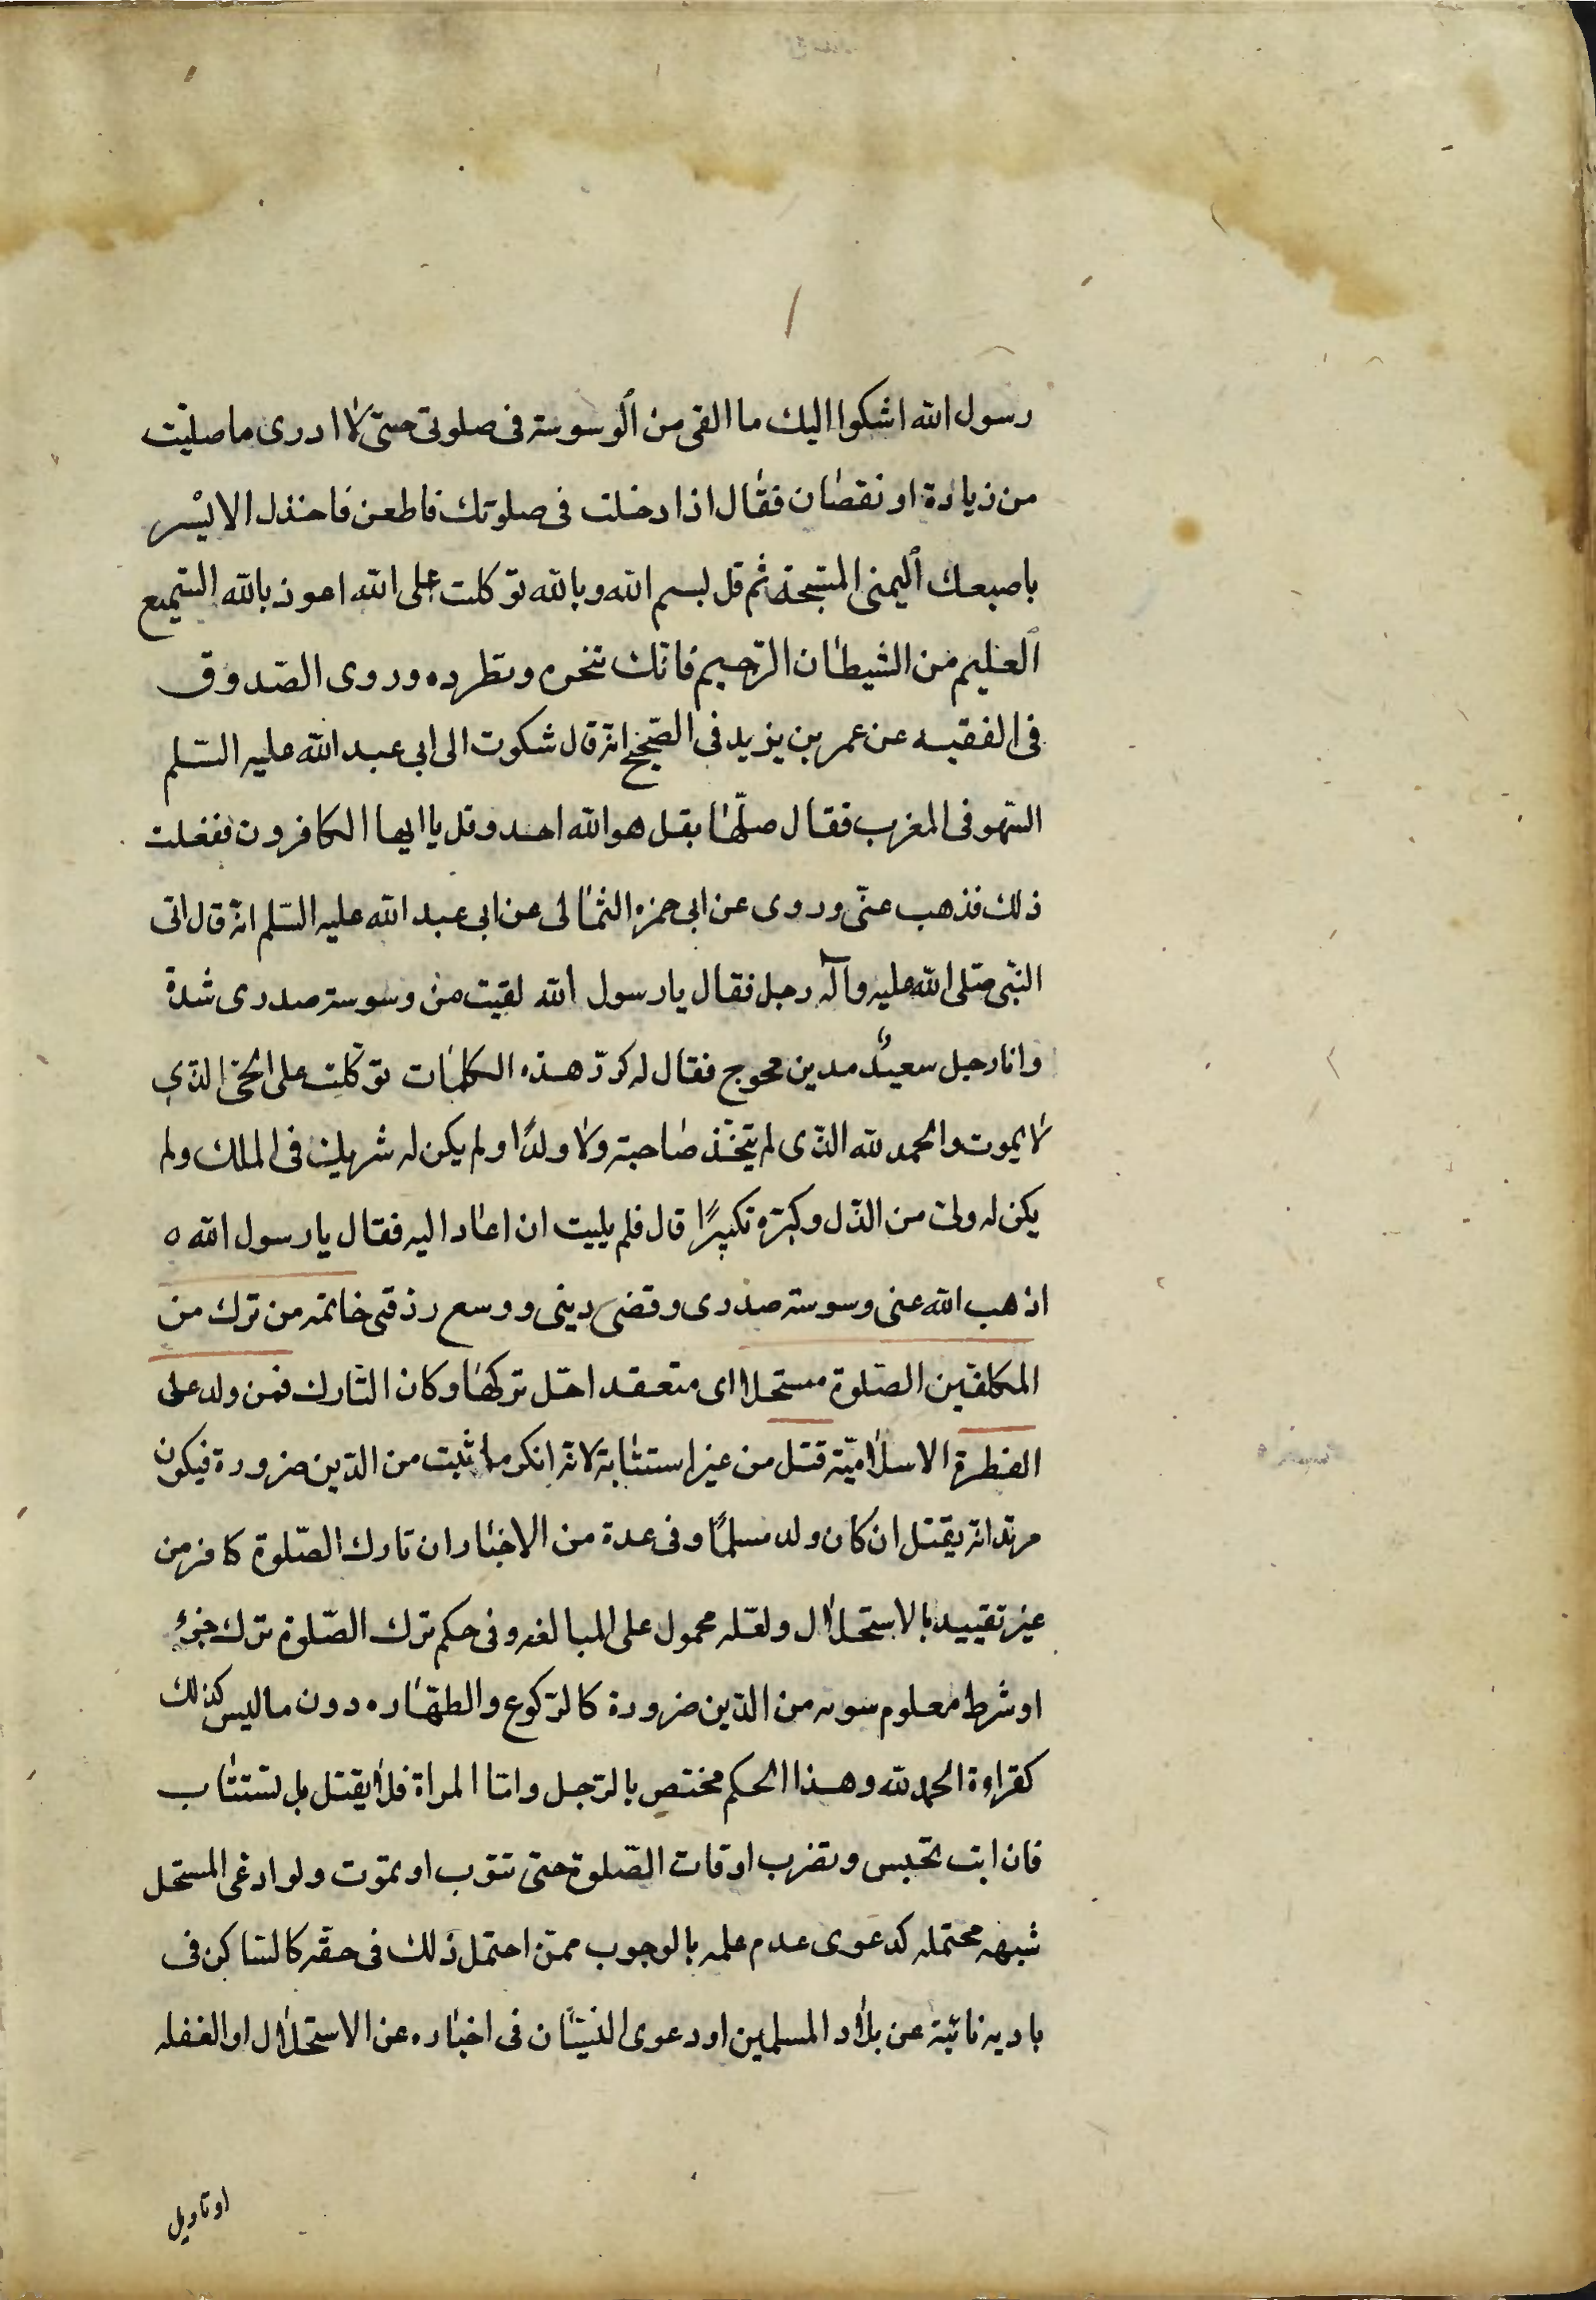 رسول الله اشكوا اليك ما القى من الوسوسة فى صلوتى حتى لا ادرى ما صليت
من زيادة او نقصان فقال اذا دخلت فى صلوتك فاطعن فاخذل الايسر
باصبعك اليمنى المسبحة ثم قل بسم الله وبالله توكلت على الله اعوذ بالله السميع
العليم من الشيطان الرجيم فانك تنحره وتطرده وروى الصدوق
فى الفقيه عن عمر بن يزيد فى الصحيح انه قال شكوت الى ابى عبد الله عليه السلم
السهو فى المغرب فقال صلها بقل هو الله احد وقل يا ايها الكافرون ففعلت
ذلك فذهب عنى وروى عن ابى حمزه الثمالى عن ابى عبد الله عليه السلم انه قال اتى
النبى صلى الله عليه وآله رجل فقال يا رسول الله لقيت من وسوسة صدرى شدة
وانا رجل سعيد مدين محوج فقال له كرر هذه الكلمات توكلت على الحى الذى
لا يموت والحمد لله الذى لم يتخذ صاحبة ولا ولدا ولم يكن له شريك فى الملك ولم
يكن له ولى من الذل وكبره تكبيرا قال فلم يلبث ان اعاد اليه فقال يا رسول الله ه
اذهب الله عنى وسوسة صدرى وقضى دينى ووسع رزقى خاتمه من ترك من
المكلفين الصلوة مستحلا اى متعقد احل تركها وكان التارك فمن ولد على
الفطرة الاسلامية قتل من غير استتابة لانه انكر ما ثبت من الدين ضرورة فيكون
مرتدا نه يقتل ان كان ولد مسلما وفى عدة من الاخبار ان تارك الصلوة كافر من
غير تقييد بالاستحلال ولعله محمول على المبالغه وفى حكم ترك الصلوة ترك جزء
او شرط معلوم سوته من الدين ضرورة كالركوع والطهاره دون ما ليس كذلك
كقراءة الحمد لله وهذا الحكم مختص بالرجل واما المراة فلا يقتل بل تستتاب
فان ابت تحبس وتضرب اوقات الصلوة حتى تتوب او تموت ولو ادعى المستحل
شبهه محتمله كدعوى عدم علمه بالوجوب ممن احتمل ذلك فى حقه كالساكن فى
باديه نائية عن بلاد المسلمين او دعوى النسيان فى اخباره عن الاستحلال او الغفله
او تاويل